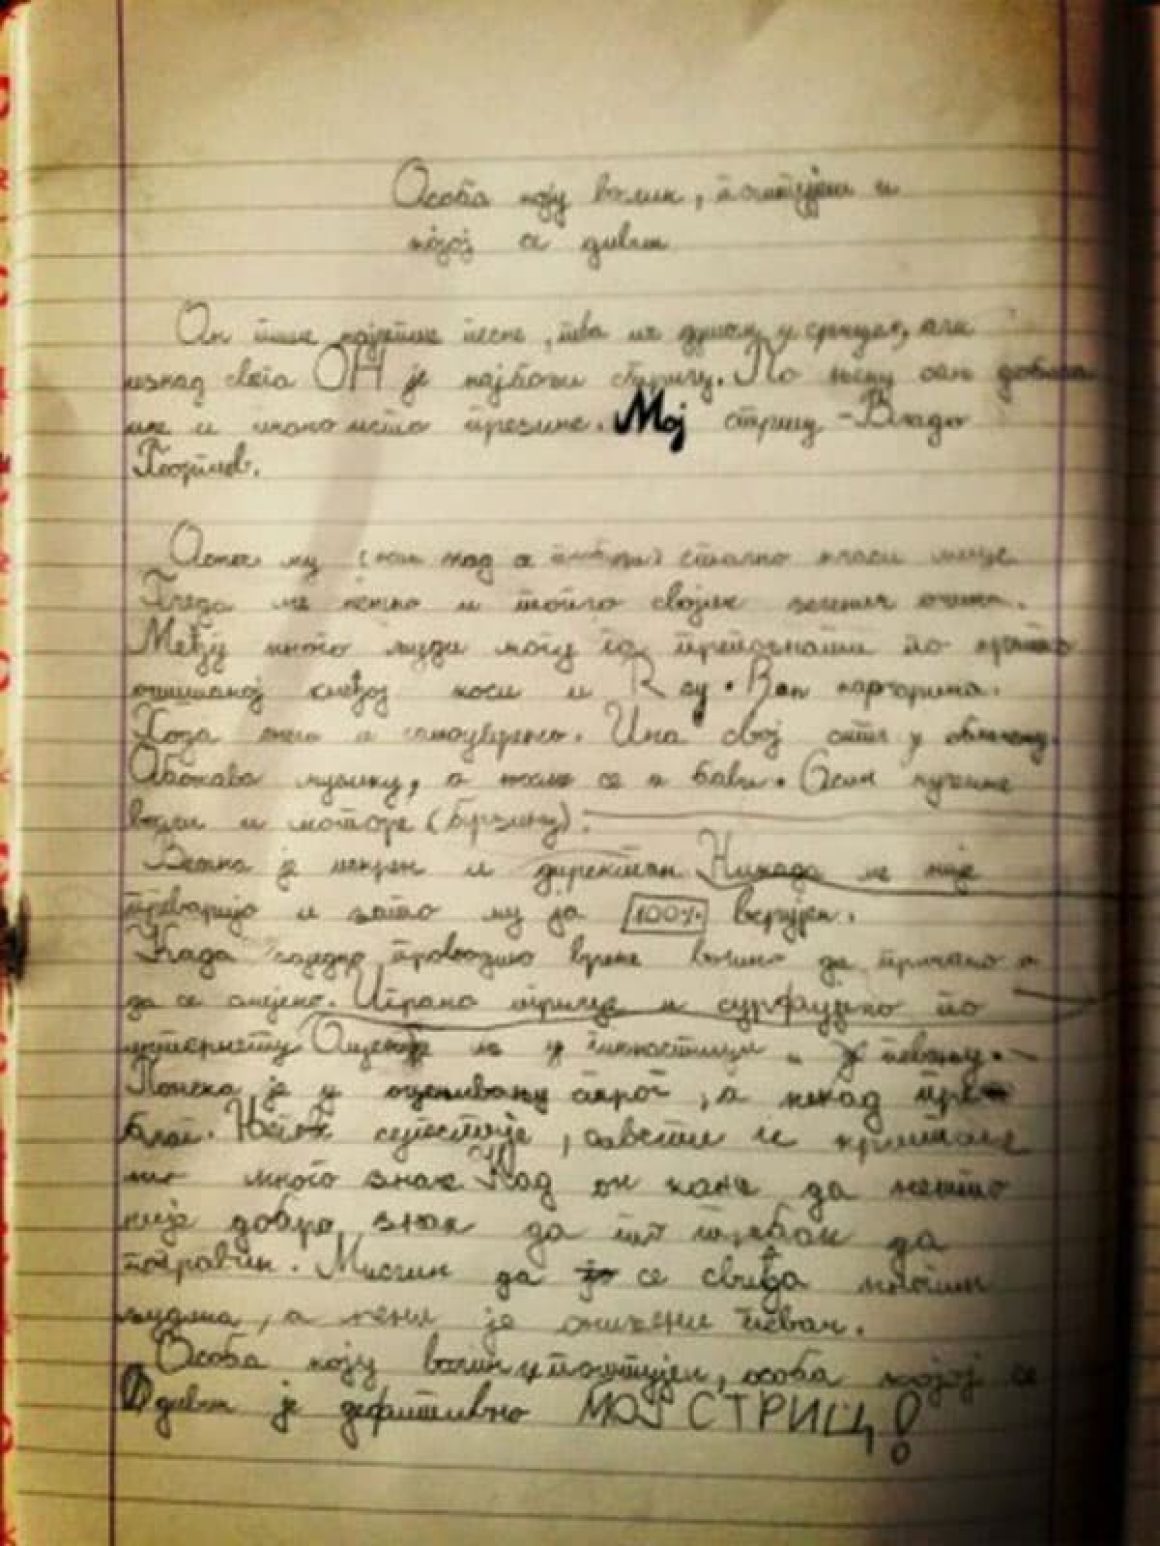 Особа коју волим, поштујем и
којој се дивим
Он пише најлепше песме, пева их душом и срцем, али
изнад свега ОН је најбољи стриц. По њему сам добила
име и имамо исто презиме. Мој стриц - Владо
Георгиев.
му (чак кад се) стално краси лице
Гледа ме нежно и топло својим зеленим очима.
Међу много људи могу га препознати по кратко
ошишаној смеђој коси и Ray-Ban наочарима.
Хода лако и самоуверено. Има свој стил у облачењу.
Обожава музику, а њоме се и бави. Осим музике
воли и моторе (брзину).
Веома је искрен и директан Никада ме није
преварио и зато му ја 100% верујем.
Када заједно проводимо време волимо да причамо и
да се смејемо. Играмо игрице и сурфујемо по
интернету Оцењује ме у гимнастици и у певању.
Понекад је у оцењивању строг, а некад пре-
благ. Његове сугестије, савети и критике
ми много значе Кад он каже да нешто
није добро знак да то требам да
поправим. Мислим да се свиђа многим
људима, а мени је омиљени певач.
Особа коју волим и поштујем, особа којој се
дивим је дефитивно МОЈ СТРИЦ!